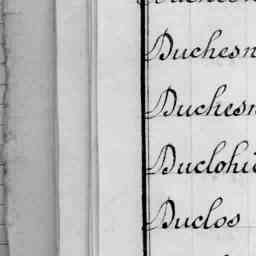 Duchesn
Duchesn
Duclohi
Duclos